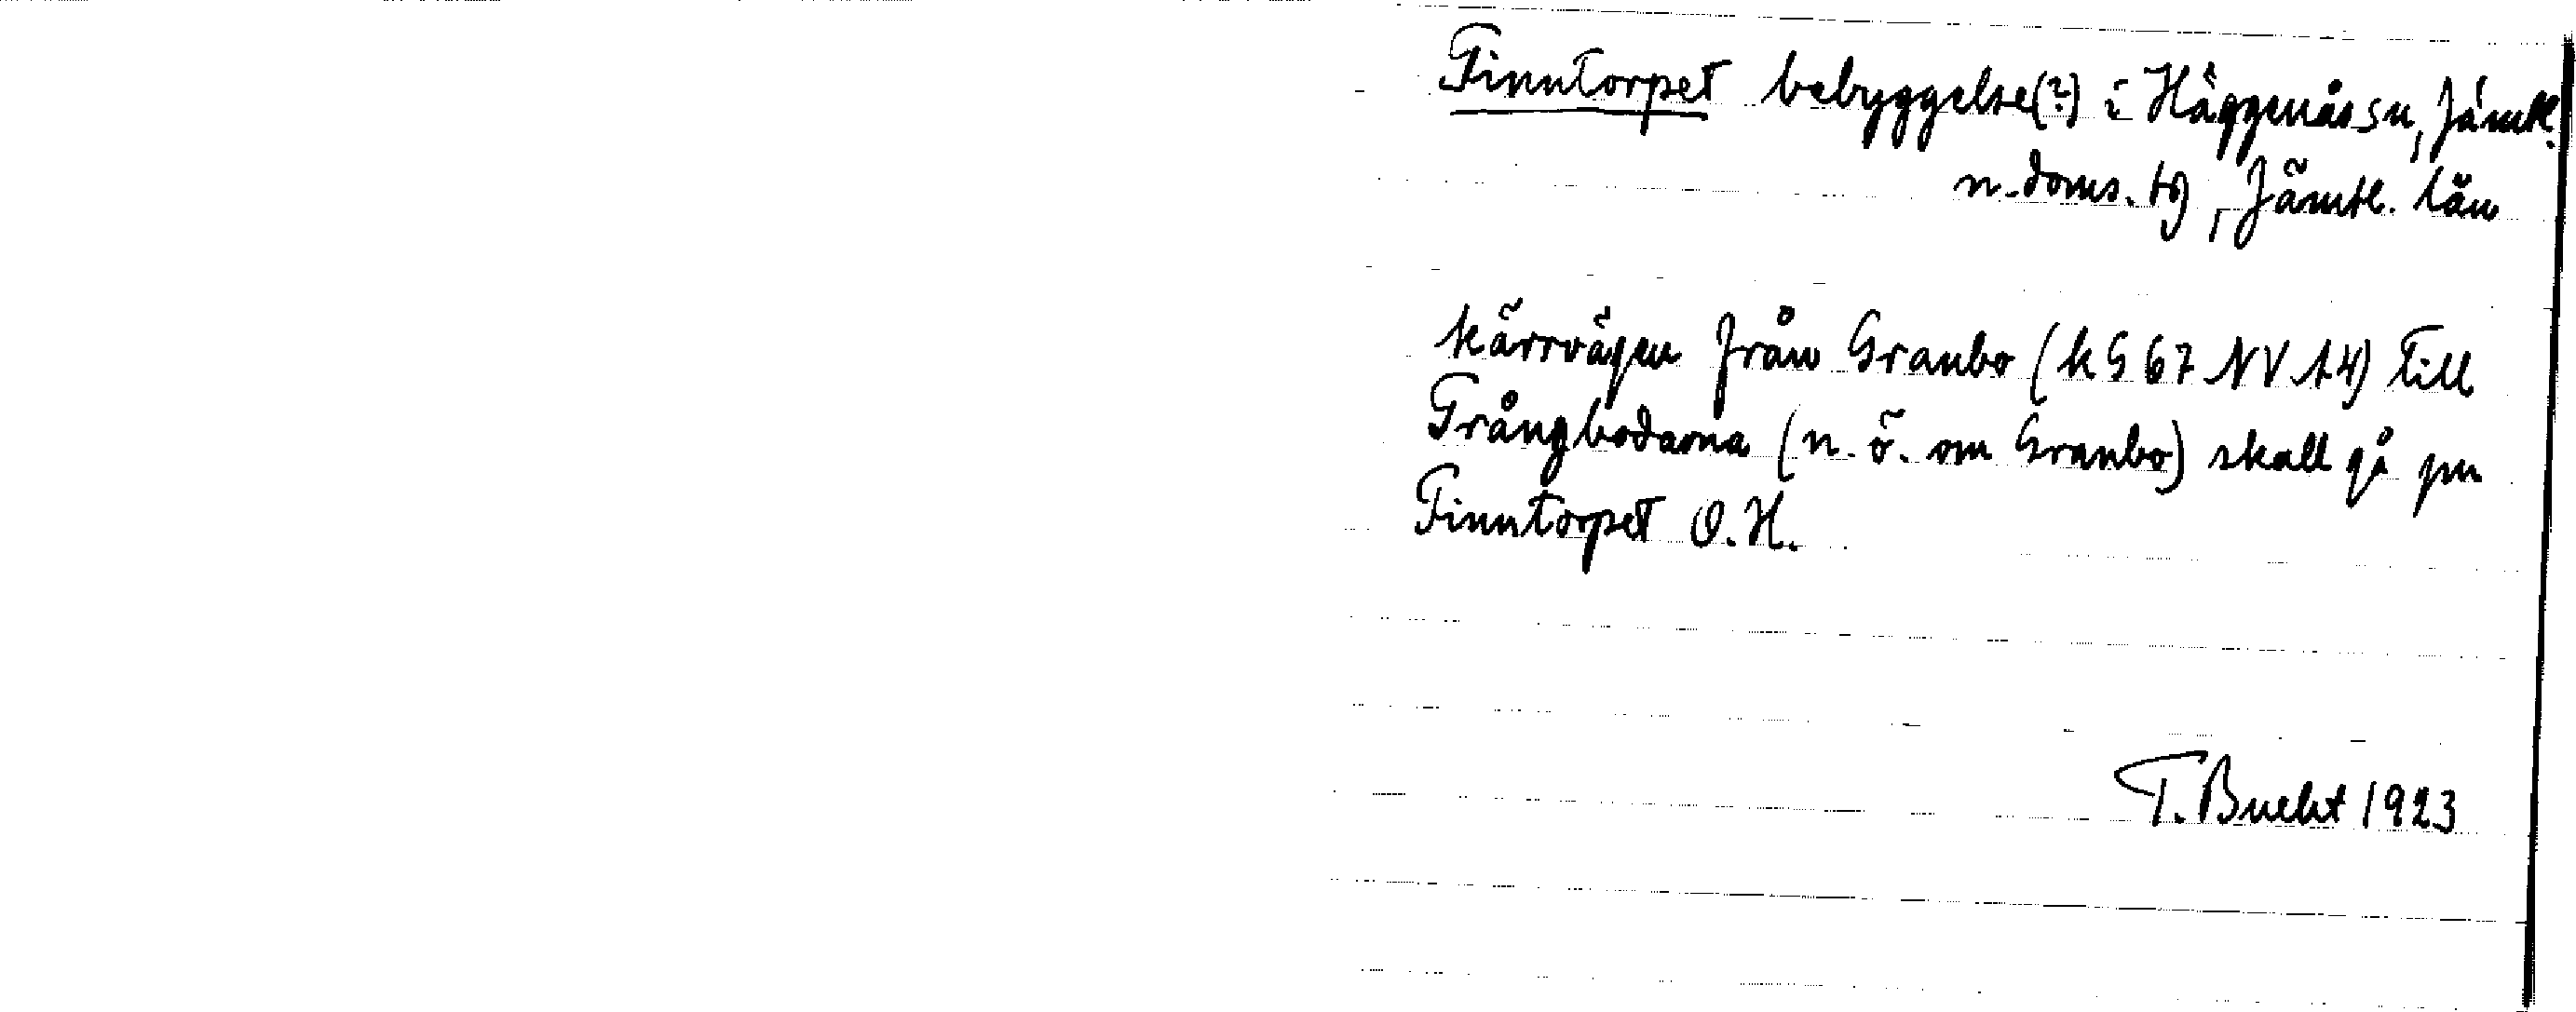 Finntorpet bebyggelse(?) i Häggenås sn, Jämtl.
n. doms. tg, Jämtl. län
kärrvägen från Granbo (k G 67 NV 14) till
Trångbodarna (n. ö. om Granbo) skall gå på
Finntorpet O.H.
T. Bucht 1923